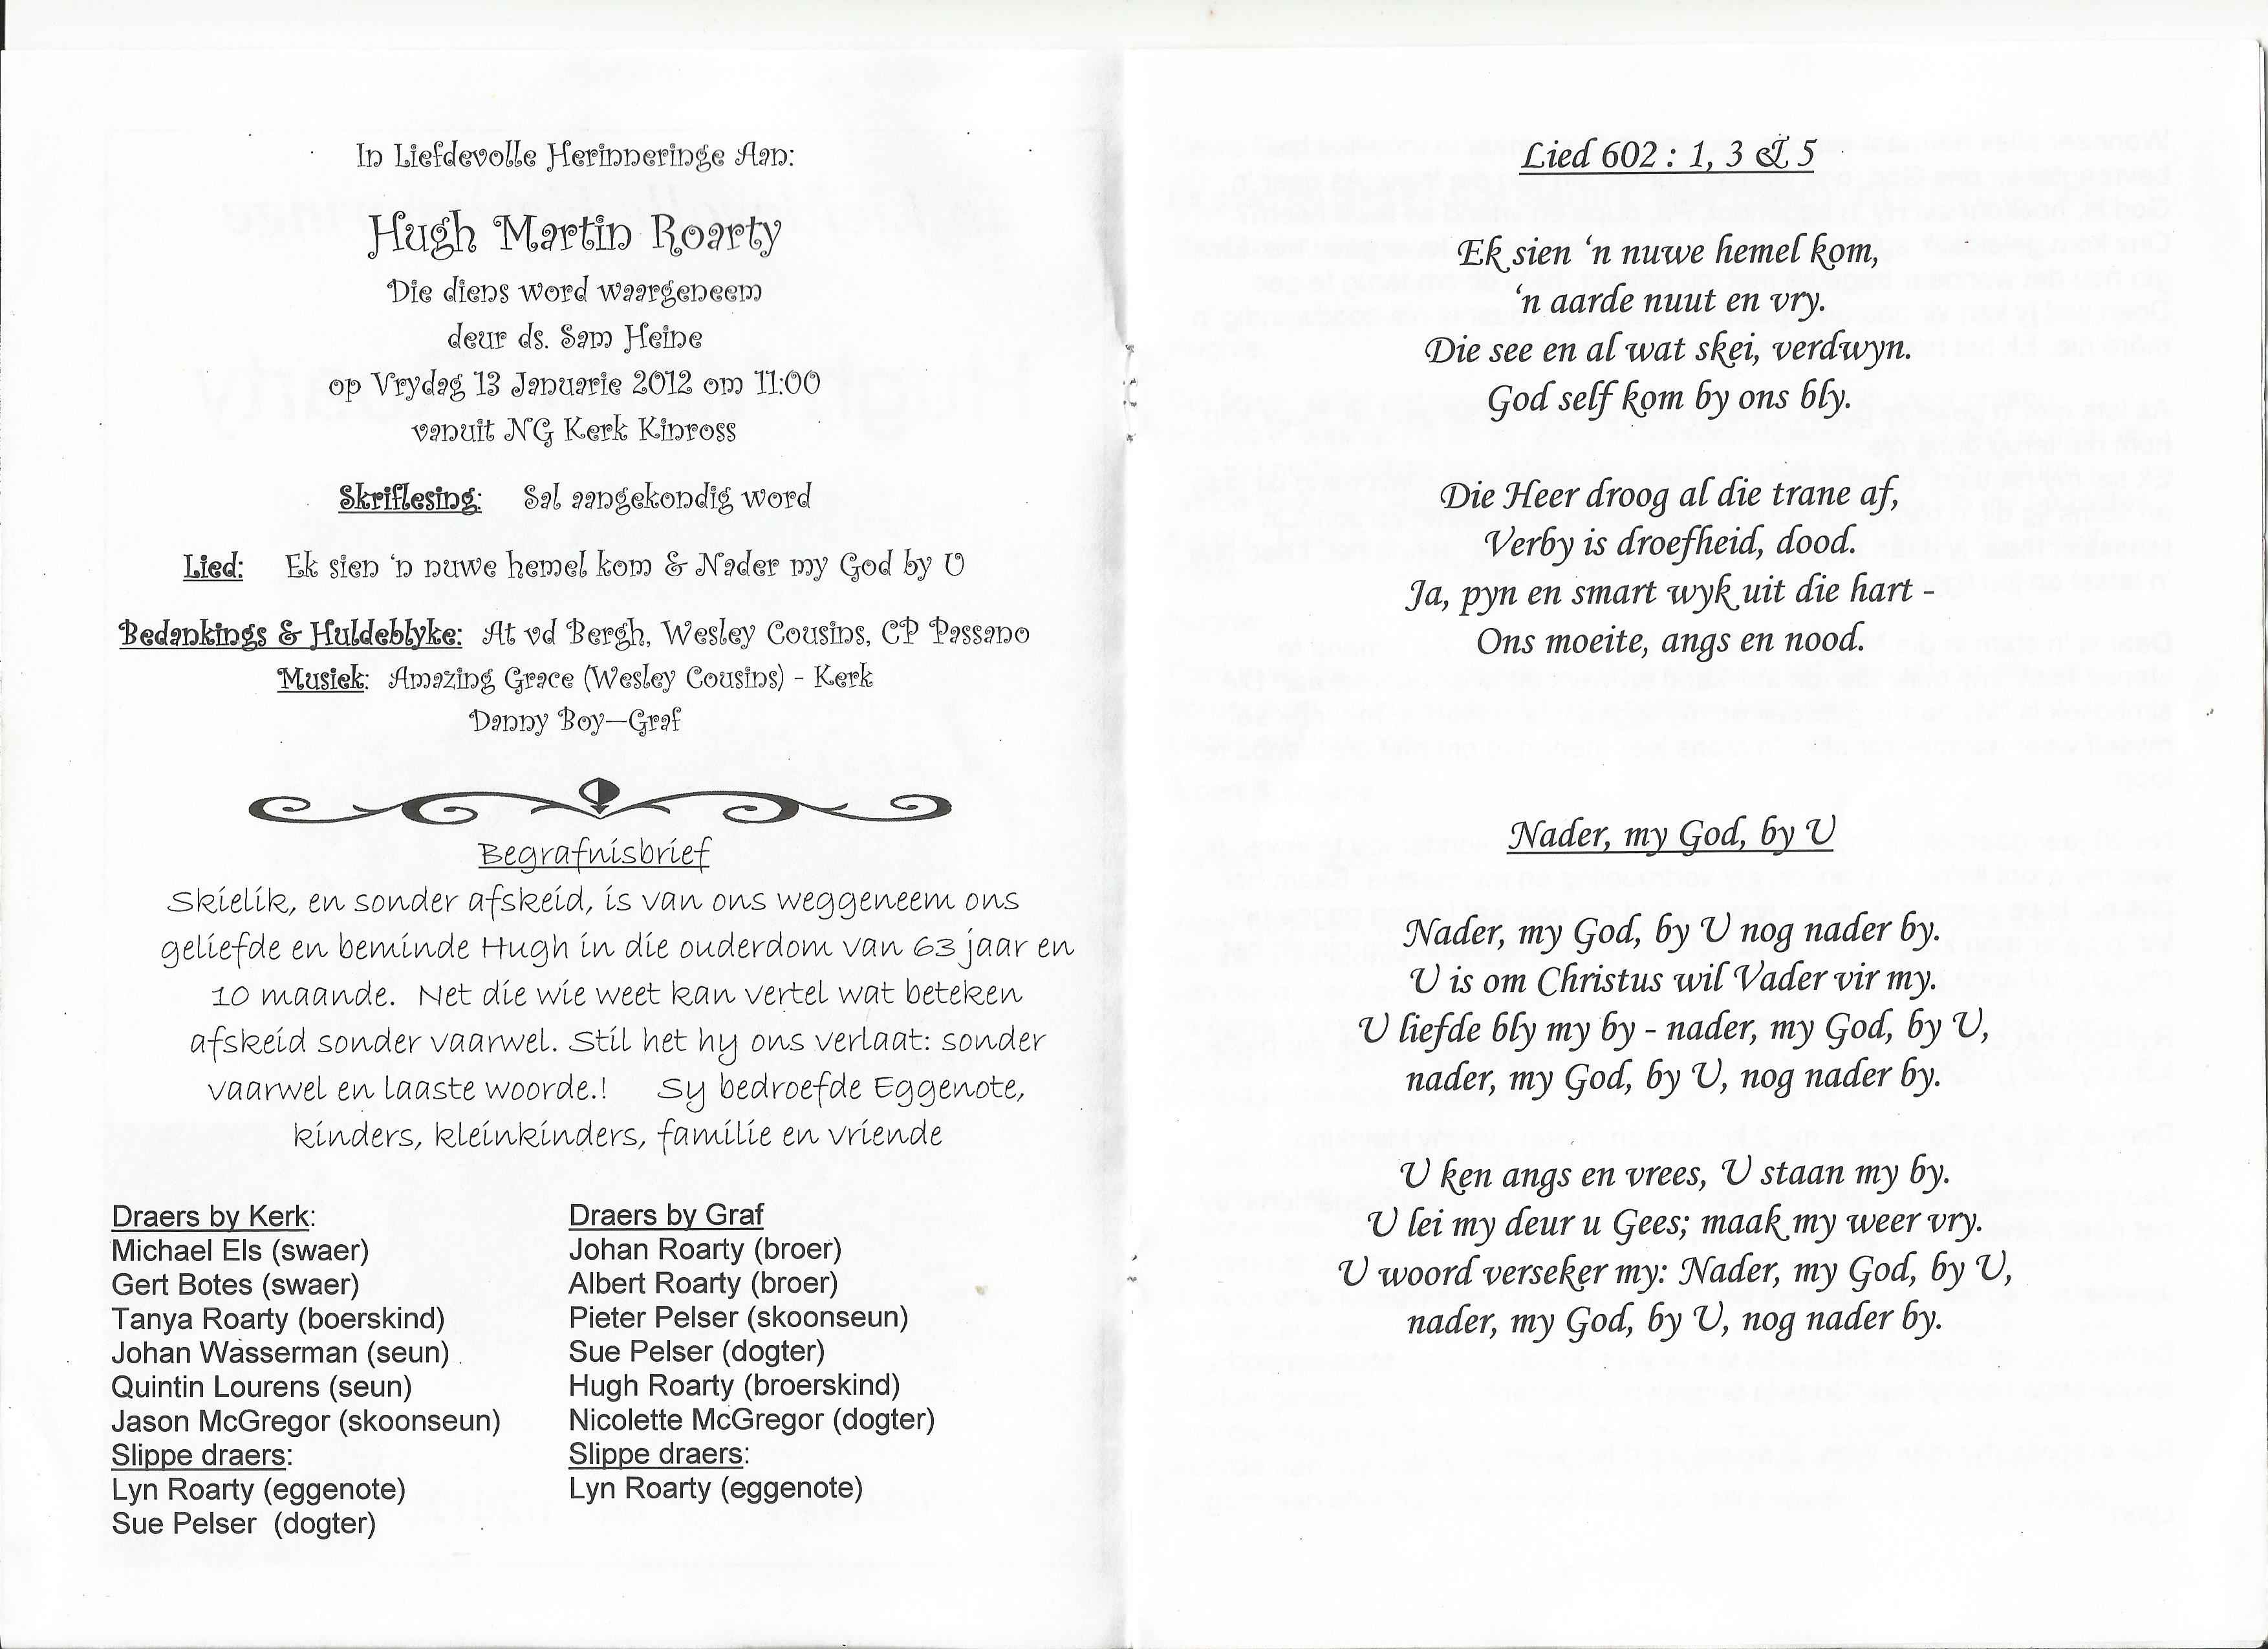 In Liefdevolle Herinneringe Aan:
Hugh Martin Roarty
Die diens word waargeneem
deur ds. Sam Heine
op Vrydag 13 Januarie 2012 om 11:00
vanuit NG Kerk Kinross
Skriflesing: Sal aangekondig word
Lied: Ek sien ‘n nuwe hemel kom & Nader my God by U
Bedankings & Huldeblyke: At vd Bergh, Wesley Cousins, CP Passano
Musiek: Amazing Grace (Wesley Cousins) - Kerk
Danny Boy—Graf
Begrafnisbrief
Skielik, en sonder afskeid, is van ons weggeneem ons
geliefde en beminde Hugh in die ouderdom van 63 jaar en
10 maande. Net die wie weet kan vertel wat beteken
afskeid sonder vaarwel. Stil het hy ons verlaat: sonder
vaarwel en laaste woorde.! Sy bedroefde Eggenote,
kinders, kleinkinders, familie en vriende
Draers by Kerk:
Michael Els (swaer)
Gert Botes (swaer)
Tanya Roarty (boerskind)
Johan Wasserman (seun)
Quintin Lourens (seun)
Jason McGregor (skoonseun)
Slippe draers:
Lyn Roarty (eggenote)
Sue Pelser (dogter)
Draers by Graf
Johan Roarty (broer)
Albert Roarty (broer)
Pieter Pelser (skoonseun)
Sue Pelser (dogter)
Hugh Roarty (broerskind)
Nicolette McGregor (dogter)
Slippe draers:
Lyn Roarty (eggenote)
Lied 602 : 1, 3 & 5
Ek sien ‘n nuwe hemel kom,
‘n aarde nuut en vry.
Die see en al wat skei, verdwyn.
God self kom by ons bly.
Die Heer droog al die trane af,
Verby is droefheid, dood.
Ja, pyn en smart wyk uit die hart -
Ons moeite, angs en nood.
Nader, my God, by U
Nader, my God, by U nog nader by.
U is om Christus wil Vader vir my.
U liefde bly my by - nader, my God, by U,
nader, my God, by U, nog nader by.
U ken angs en vrees, U staan my by.
U lei my deur u Gees; maak my weer vry.
U woord verseker my: Nader, my God, by U,
nader, my God, by U, nog nader by.